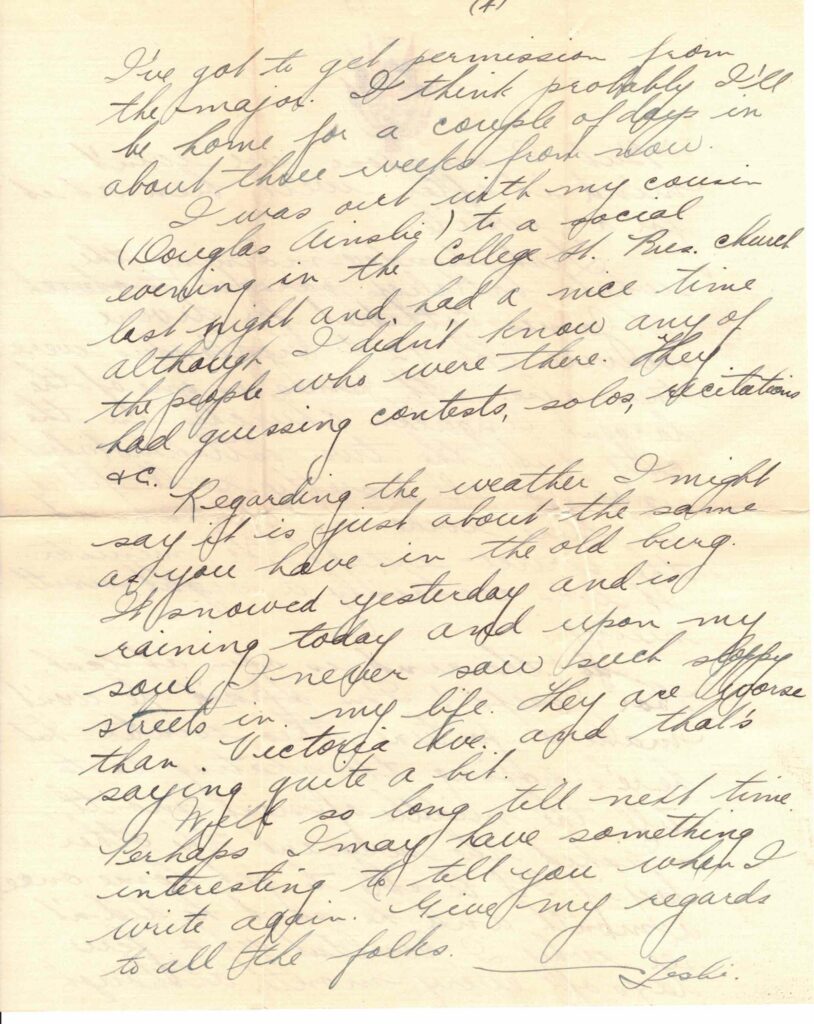 (4)
I've got to get permission from
the major. I think probably I'll
be home for a couple of days in
about three weeks from now.
I was out with my cousin
(Douglas Ainslie) to a social
evening in the College St. Pres. church
last night and had a nice time
although I didn't know any of
the people who were there. They
had guessing contests, solos, recitations
&c.
Regarding the weather I might
say it is just about the same
as you have in the old burg.
It snowed yesterday and is
raining today and upon my
soul I never saw such sloppy
streets in my life. They are worse
than Victoria Ave. and that's
saying quite a bit.
Well so long till next time.
Perhaps I may have something
interesting to tell you when I
write again. Give my regards
to all the folks.
Leslie.